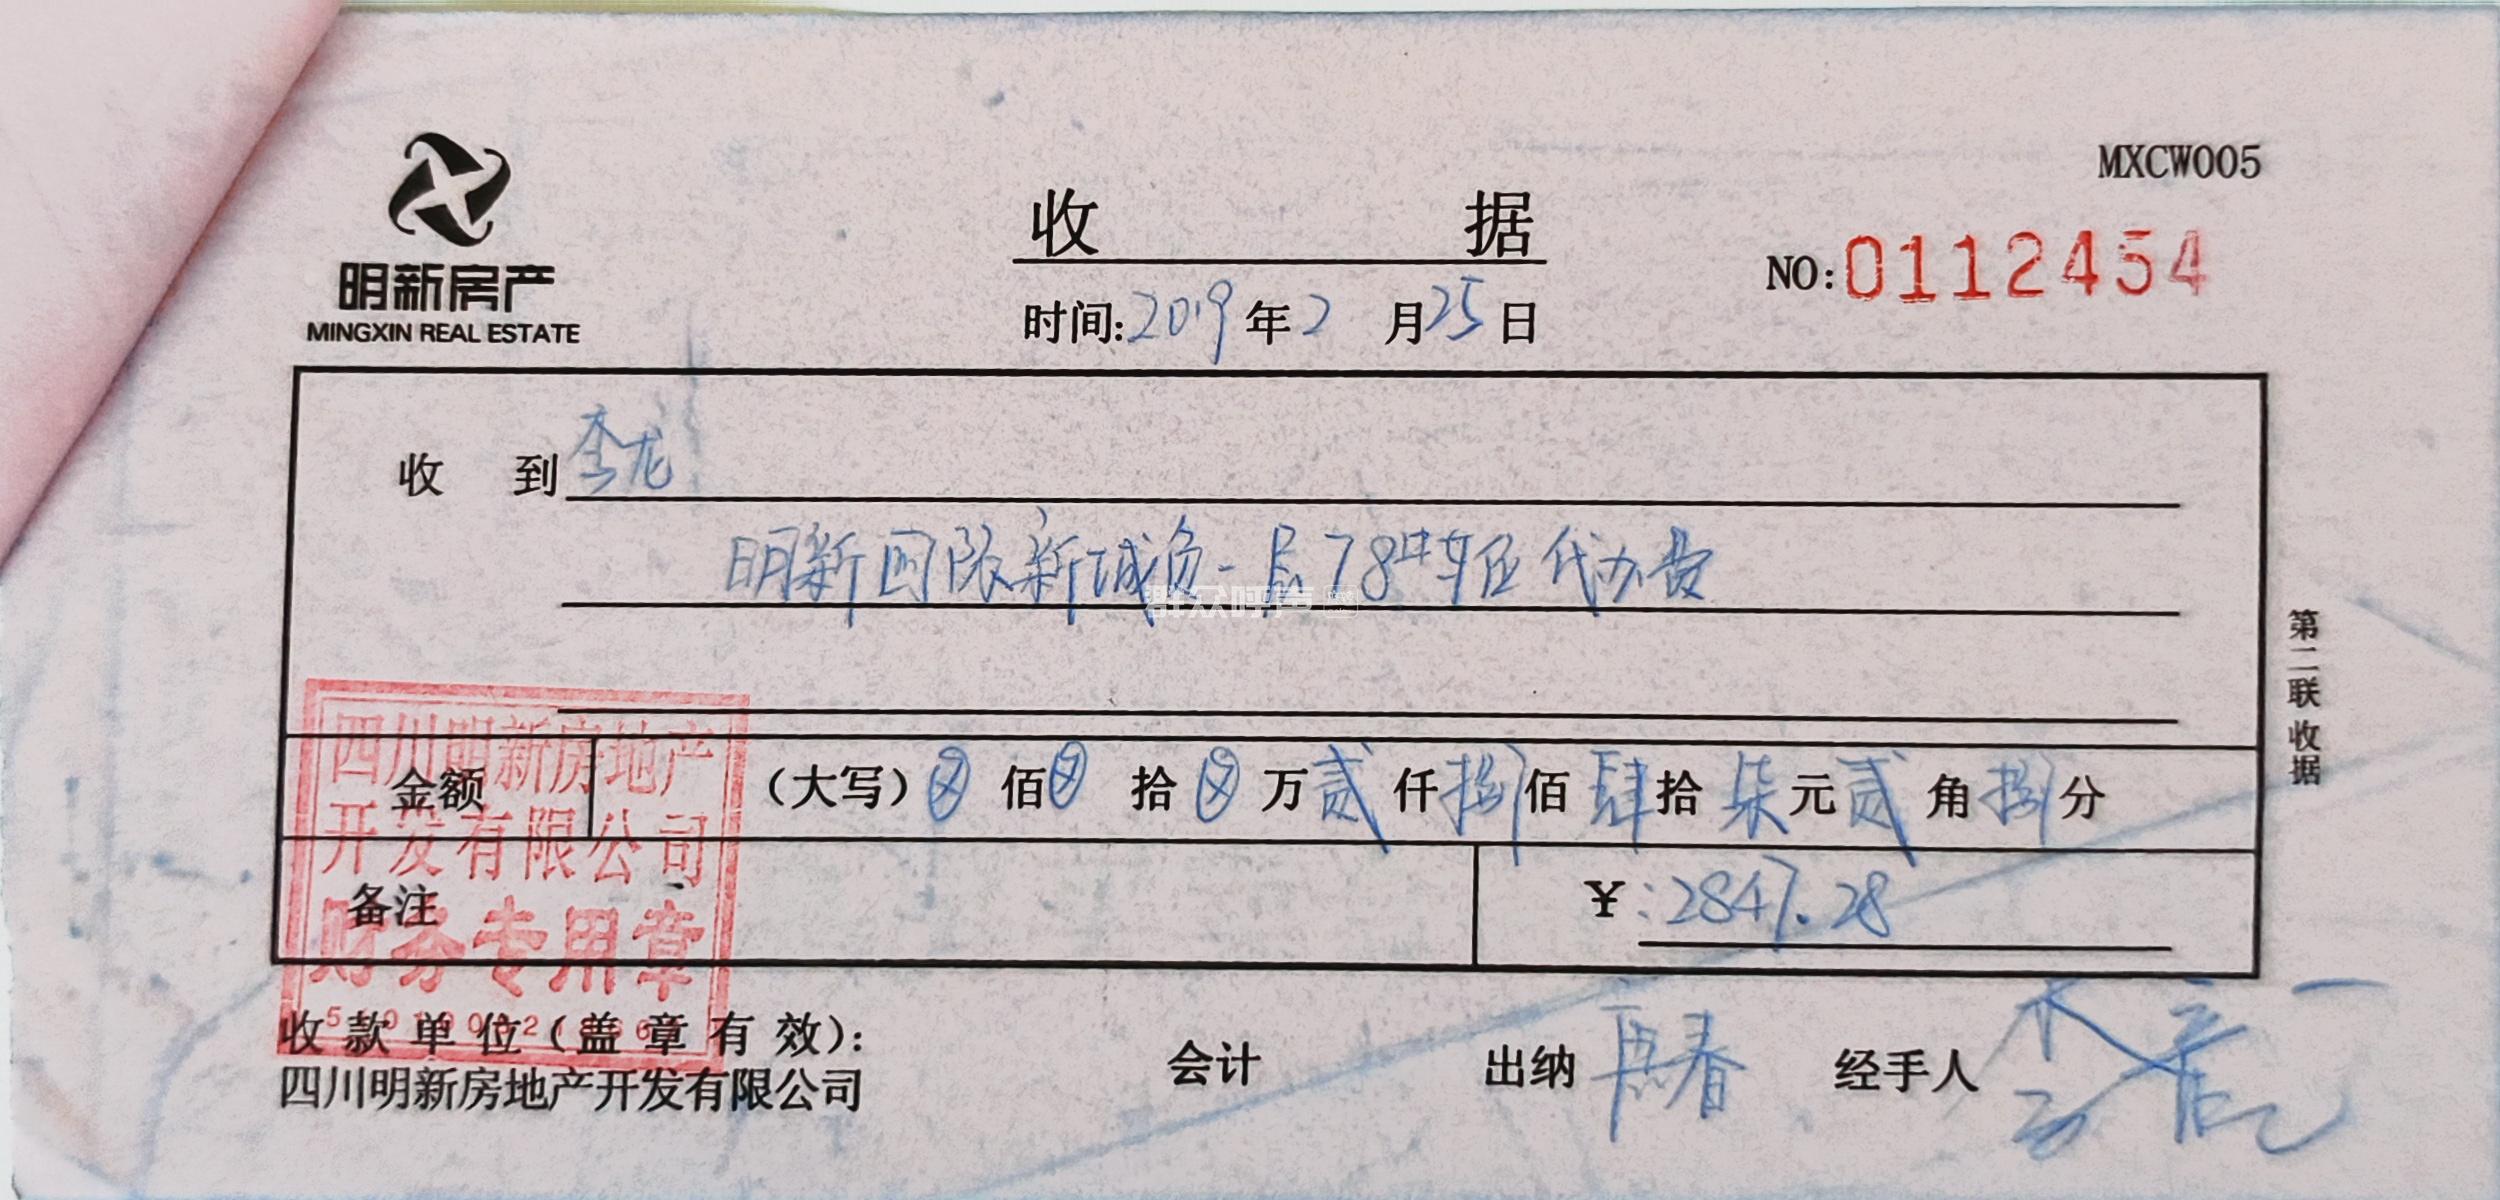 MXCW005
明新房产
MINGXIN REAL ESTATE
收 据
NO: 0112454
时间: 2019 年 2 月 25 日
收 到 李龙
明新国际新城负一层78#车位代办费
群众呼声
第二联 收据
金额 （大写）⊗ 佰 ⊗ 拾 ⊗ 万 贰 仟 捌 佰 肆 拾 柒 元 贰 角 捌 分
备注 ¥:2847.28
四川明新房地产
开发有限公司
财务专用章
收款单位(盖章有效):
四川明新房地产开发有限公司
会计 出纳 经手人